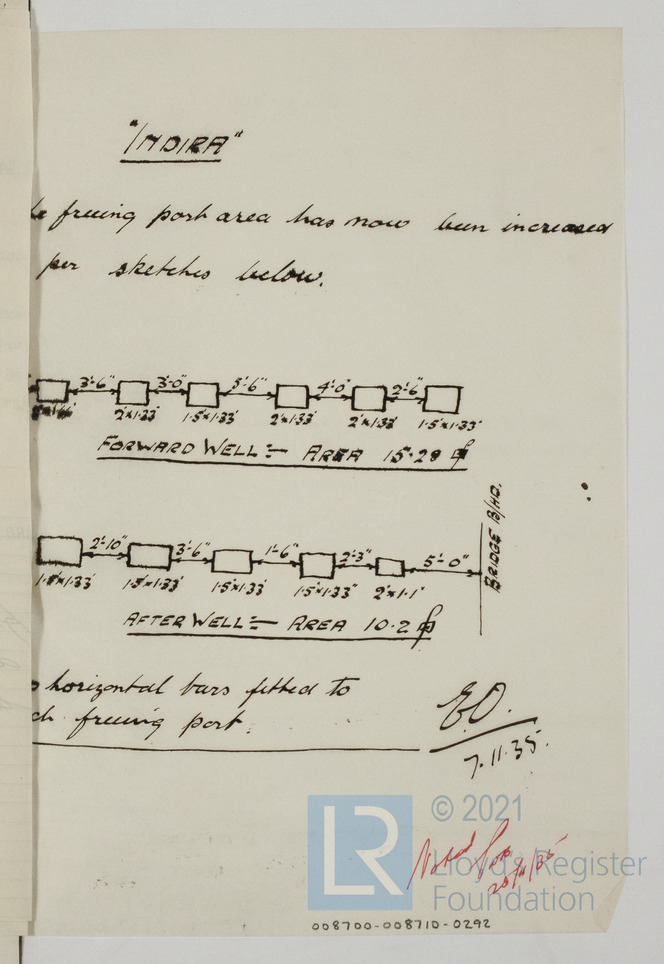 "INDIRA"
freeing port area has now been increased
per sketches below.
3'-6" 3'-0" 5'-6" 4'-0" 2'-6"
2'x1.33' 1.5'x1.33' 2'x1.33' 2'x1.33' 1.5'x1.33'
FORWARD WELL :- AREA 15.28
BRIDGE B/HD.
2'-10" 3'-6" 1'-6" 2'-3" 5'-0"
1.5'x1.33' 1.5'x1.33' 1.5'x1.33' 1.5'x1.33' 2'x1.1'
AFTER WELL :- AREA 10.2
horizontal bars fitted to
freeing port.
E.O.
7.11.35.
LR
© 2021
Lloyd's Register
Foundation
Noted
20/11/35
008700-008710-0292